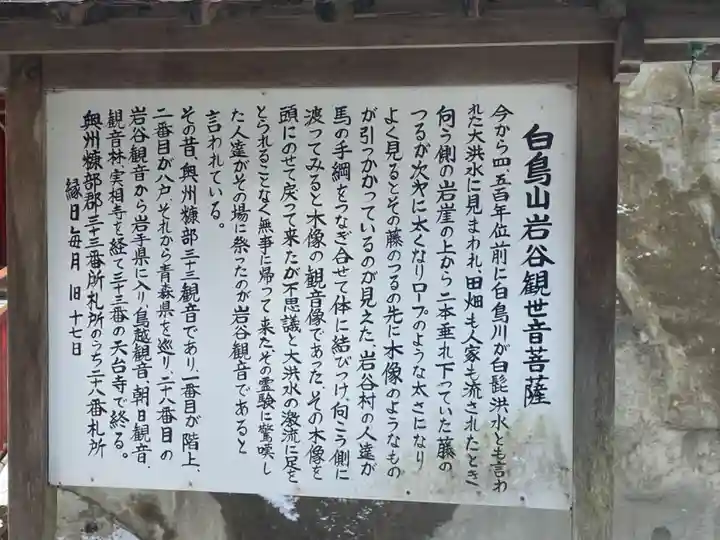 白鳥山岩谷観世音菩薩
今から四、五百年位前に白鳥川が白髭洪水とも言わ
れた大洪水に見まわれ、田畑も人家も流されたとき
向う側の岩崖の上から二本垂れ下っていた藤の
つるが次㐧に太くなりロープのような太さになり
よく見るとその藤のつるの先に木像のようなもの
が引っかかっているのが見えた、岩谷村の人達が
馬の手綱をつなぎ合せて体に結びつけ、向こう側に
渡ってみると木像の観音像であった、その木像を
頭にのせて戻って来たが不思議と大洪水の激流に足を
とられることなく無事に帰って来たその霊験に驚嘆し
た人達がその場に祭ったのが岩谷観音であると
言われている。
その昔、奥州糠部三十三観音であり、一番目が階上、
二番目が八戸、それから青森県を巡り、二十八番目の
岩谷観音から岩手県に入り、鳥越観音、朝日観音、
観音林、実相寺を経て三十三番の天台寺で終る。
奥州糠部郡三十三番所札所のうち二十八番札所
縁日毎月旧十七日